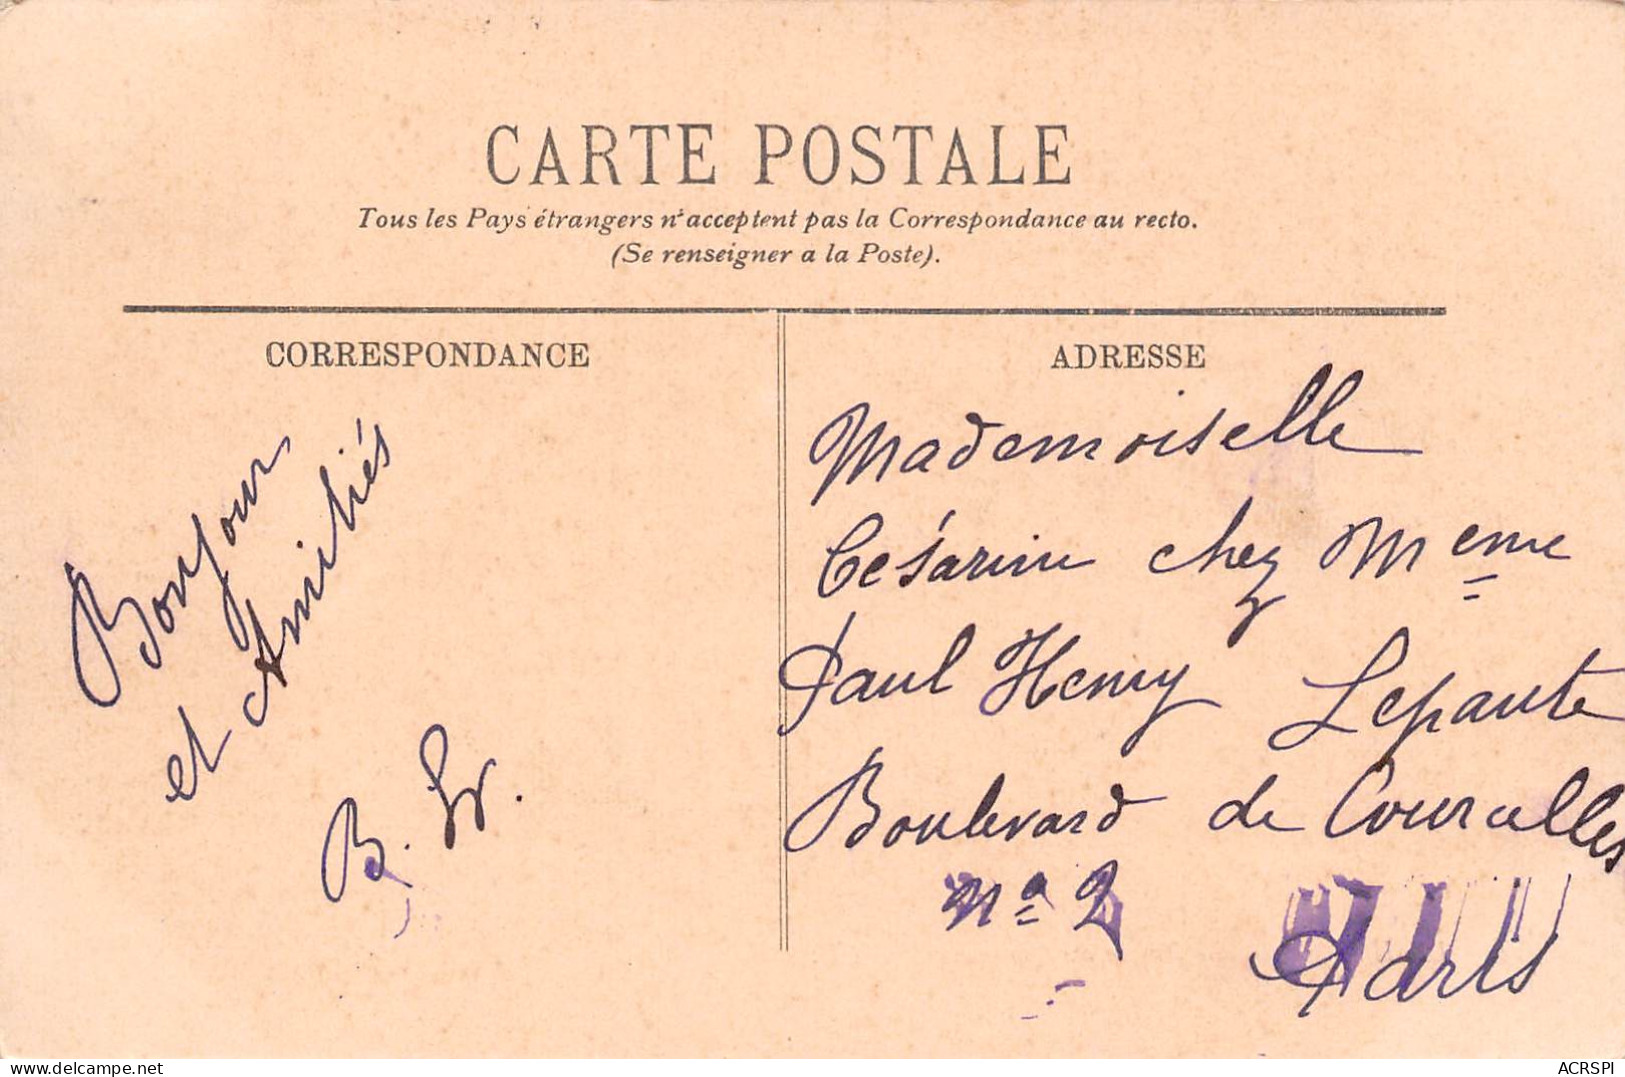 CARTE POSTALE
Tous les Pays étrangers n'acceptent pas la Correspondance au recto.
(Se renseigner a la Poste).
CORRESPONDANCE
Bonjour
et Amitiés
B.
ADRESSE
Mademoiselle
Césarine chez Meme
Paul Henry Lepaute
Boulevard de Courcelles
No 2
Paris
delcampe.net
ACRSPI